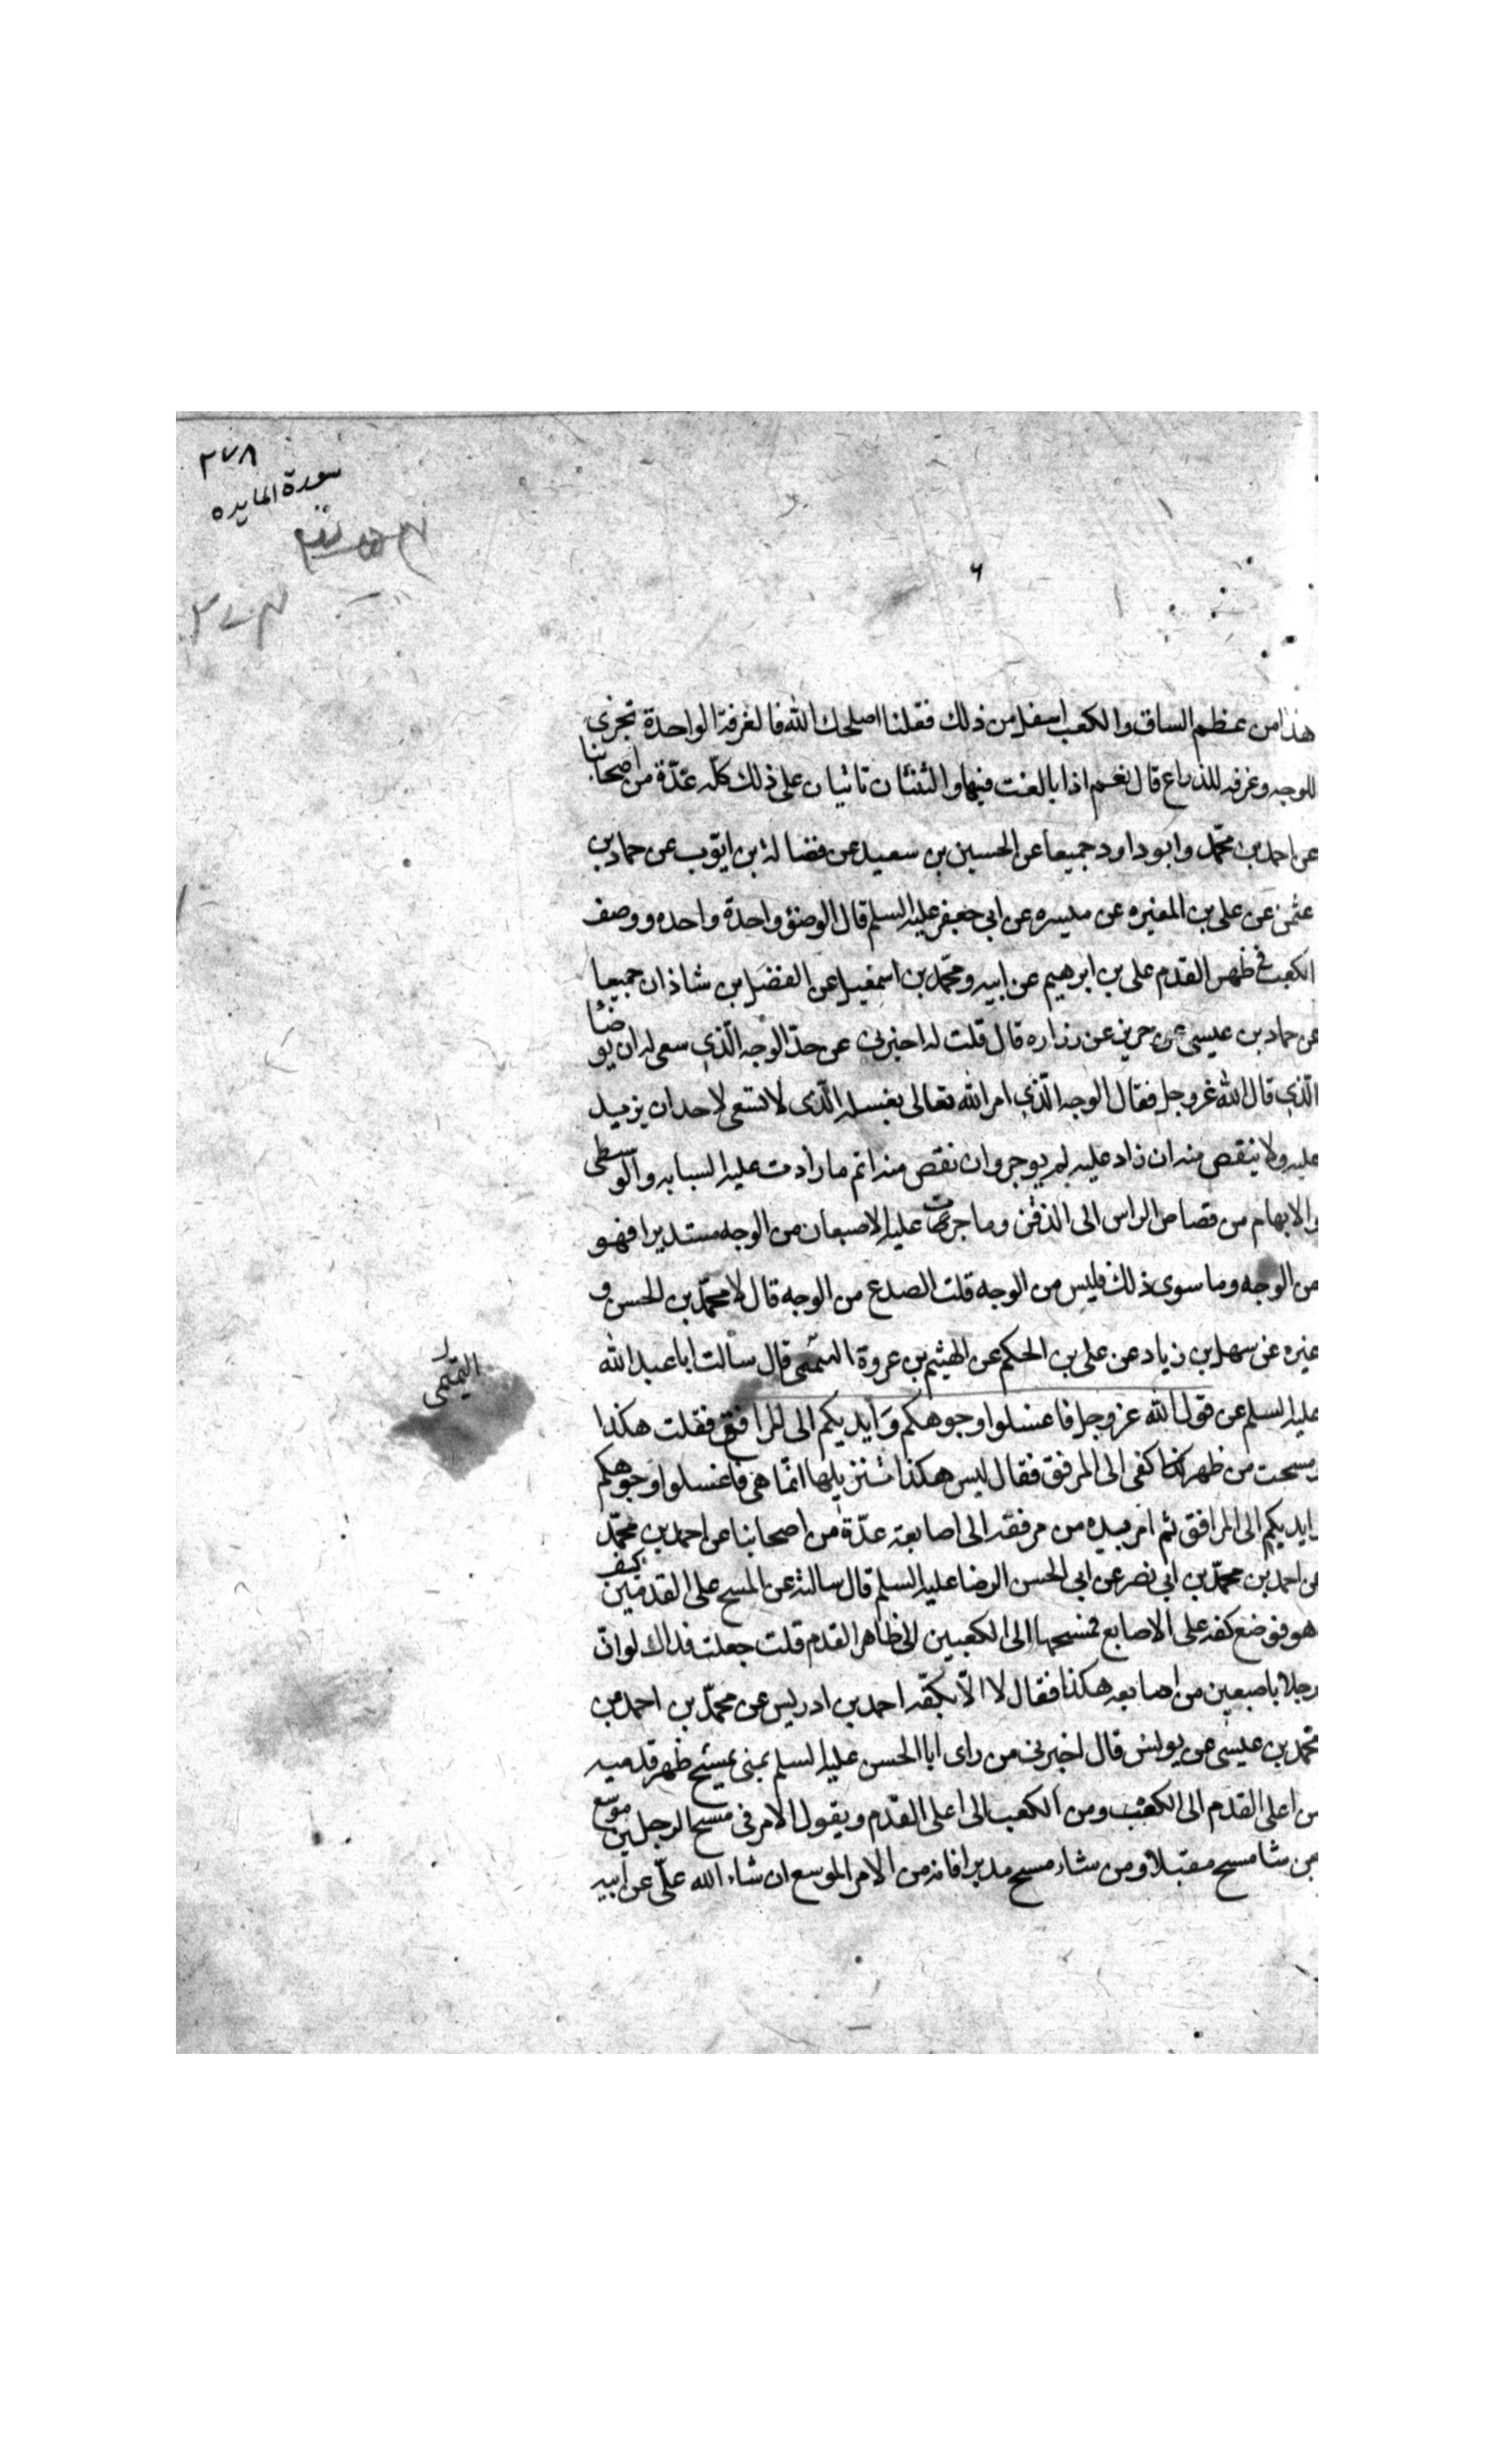 ٢٧٨
سورة المايده
هذا من عظم الساق والكعب اسفل من ذلك فقلنا اصلحك الله فالغرفة الواحدة تجزى
للوجه وغرفه للذراع قال نعم اذا بالغت فيها والثنتان تاتيان على ذلك كلّه عدّة من اصحابنا
عن احمد بن محمّد وابو داود جميعا عن الحسين بن سعيد عن فضالة بن ايّوب عن حماد بن
عثمن عن على بن المغيره عن ميسره عن ابي جعفر عليه السلم قال الوضؤ واحدة واحده ووصف
الكعب في ظهر القدم على بن ابرهيم عن ابيه ومحمّد بن اسمعيل عن الفضل بن شاذان جميعا
عن حماد بن عيسى عن حريز عن زراره قال قلت له اخبرنى عن حدّ الوجه الّذي سعى له ان يوضأ
الّذي قال الله عز وجل فقال الوجه الّذي امر الله تعالى بغسله الّذى لا تسعى لاحد ان يزيد
عليه ولا ينقص منه ان زاد عليه لم يوجر وان نقص منه اثم ما زادت عليه السبابه والوسطى
والابهام من قصاص الراس الى الذقن وما جرت عليه الاصبعان من الوجه مستديرا فهو
من الوجه وما سوى ذلك فليس من الوجه قلت الصدغ من الوجه قال لا محمّد بن الحسن و
غيره عن سهل بن زياد عن على بن الحكم عن الهيثم بن عروة التميمى قال سالت ابا عبد الله
التميمى
عليه السلم عن قول الله عز وجل فاغسلوا وجوهكم وَايديكم الى المرافق فقلت هكذا
ومسحت من ظهر كفى الى المرفق فقال ليس هكذا تنزيلها انّما هى فاغسلوا وجوهكم
وايديكم الى المرافق ثم امر يده من مرفقه الى اصابعه عدّة من اصحابنا عن احمد بن محمّد
عن احمد بن محمّد بن ابي نصر عن ابي الحسن الرضا عليه السلم قال سالته عن المسح على القدمين كيف
هو فوضع كفه على الاصابع فمسحها الى الكعبين الى ظاهر القدم قلت جعلت فداك لو انّ
رجلا باصبعين من اصابعه هكذا فقال لا الّا بكفّه احمد بن ادريس عن محمّد بن احمد عن
محمّد بن عيسى عن يونس قال اخبرنى من راى ابا الحسن عليه السلم بمنى يمسح ظهر قدميه
من اعلى القدم الى الكعب ومن الكعب الى اعلى القدم ويقول الامر فى مسح الرجلين موسّع
من شا مسح مقبلا ومن شاء مسح مدبرا فانه من الامر الموسع ان شاء الله علّى عن ابيه